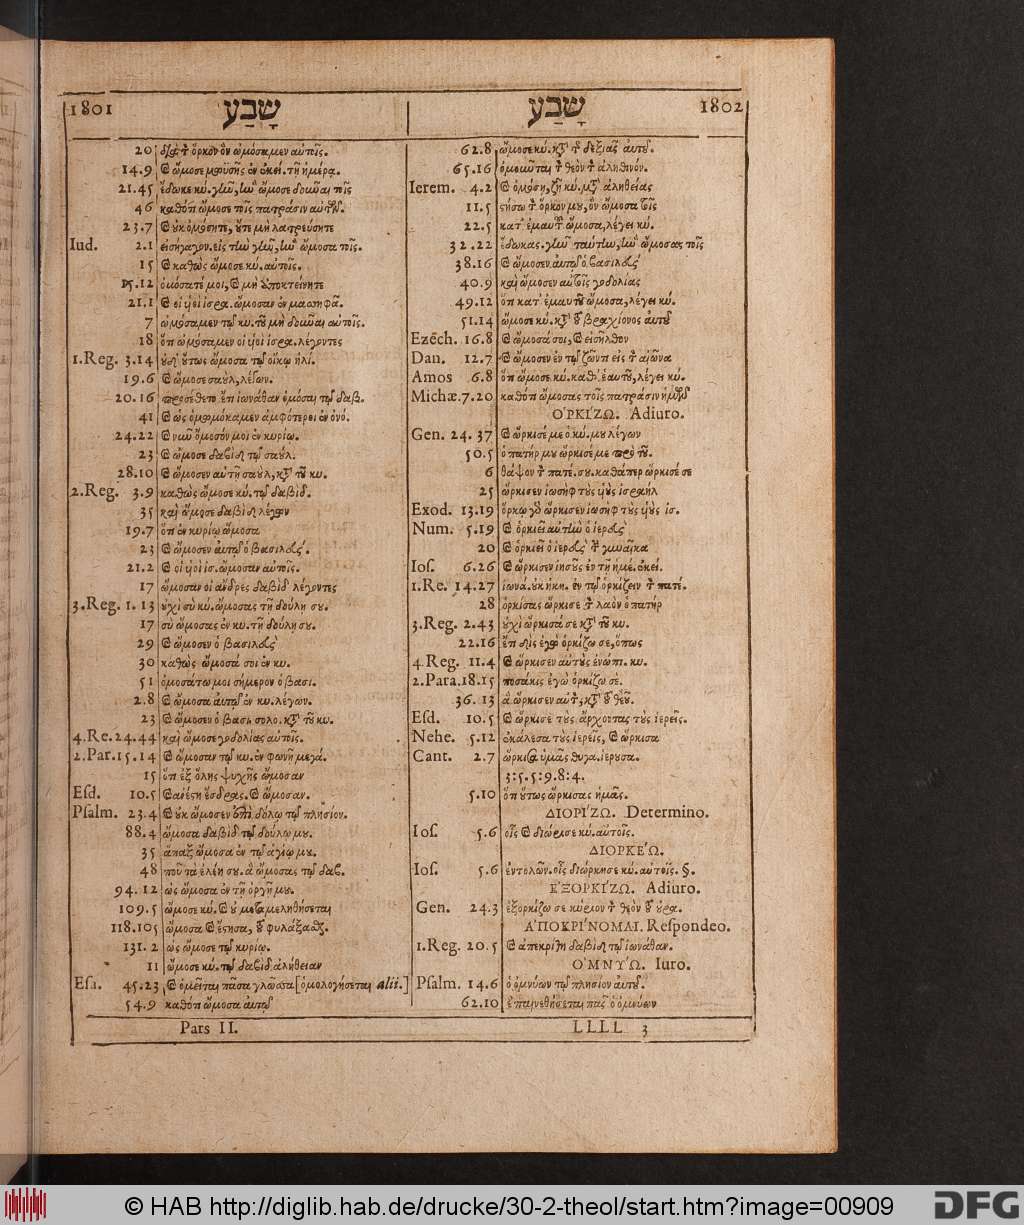 1801 שָׁבַע
20 διὰ τ ὅρκον ὃν ὠμόσαμεν αὐτοῖς.
14.9 ὤμοσε μωϋσῆς ἐν ἐκεί. τῇ ἡμέρᾳ.
21.45 ἔδωκε κύ. ὤμοσε δοῦναι τοῖς
46 καθότι ὤμοσε τοῖς πατράσιν αὐτῶν.
23.7 οὐκ ὀμόσητε, οὔτε μὴ λατρεύσητε
Iud. 2.1 εἰσήγαγον. εἰς τὴν γῆν, ἣν ὤμοσα τοῖς.
15 καθὼς ὤμοσε κύ. αὐτοῖς.
15.12 ὀμόσατέ μοι, μὴ ἀποκτείνητε
21.1 οἱ υἱοὶ ἰσρα. ὤμοσαν ἐν μασσηφᾶ.
7 ὠμόσαμεν τῷ κυ. τοῦ μὴ δοῦναι αὐτοῖς.
18 ὅτι ὠμόσαμεν οἱ υἱοὶ ἰσρα. λέγοντες
1.Reg. 3.14 οὐδ' οὕτως ὤμοσα τῷ οἴκῳ ἠλί.
19.6 ὤμοσε σαοὺλ, λέγων.
20.16 προσέθετο ἔτι ἰωνάθαν ὀμόσαι τῷ δαβ.
41 ὡς ὀμωμόκαμεν ἀμφότεροι ἐν ὀνό.
24.22 νῦν ὄμοσόν μοι ἐν κυρίῳ.
23 ὤμοσε δαβὶδ τῷ σαούλ.
28.10 ὤμοσεν αὐτῇ σαοὺλ, κατὰ τοῦ κυ.
2.Reg. 3.9 καθὼς ὤμοσε κύ. τῷ δαβίδ.
35 καὶ ὤμοσε δαβὶδ λέγων
19.7 ὅτι ἐν κυρίῳ ὤμοσα
23 ὤμοσεν αὐτῷ ὁ βασιλεύς.
21.2 οἱ υἱοὶ ἰσ. ὤμοσαν αὐτοῖς.
17 ὤμοσαν οἱ ἄνδρες δαβὶδ λέγοντες
3.Reg. 1.13 οὐχὶ σὺ κύ. ὤμοσας τῇ δούλῃ σου.
17 σὺ ὤμοσας ἐν κυ. τῇ δούλῃ σου.
29 ὤμοσεν ὁ βασιλεὺς
30 καθὼς ὤμοσά σοι ἐν κυ.
51 ὀμοσάτω μοι σήμερον ὁ βασι.
2.8 ὤμοσα αὐτῷ ἐν κυ. λέγων.
23 ὤμοσεν ὁ βασι. σολο. κατὰ τοῦ κυ.
4.Re. 24.44 καὶ ὤμοσε γοδολίας αὐτοῖς.
2.Par. 15.14 ὤμοσαν τῷ κυ. ἐν φωνῇ μεγά.
15 ὅτι ἐξ ὅλης ψυχῆς ὤμοσαν
Esd. 10.5 ἀνέστη ἔσδρας. ὤμοσαν.
Psalm. 23.4 οὐκ ὤμοσεν ἐπὶ δόλῳ τῷ πλησίον.
88.4 ὤμοσα δαβὶδ τῷ δούλῳ μου.
35 ἅπαξ ὤμοσα ἐν τῷ ἁγίῳ μου.
48 ποῦ τὰ ἐλέη σου. ἃ ὤμοσας τῷ δαβ.
94.12 ὡς ὤμοσα ἐν τῇ ὀργῇ μου.
109.5 ὤμοσε κύ. οὐ μεταμεληθήσεται
118.105 ὤμοσα ἔστησα, τοῦ φυλάξασθαι.
131.2 ὡς ὤμοσε τῷ κυρίῳ.
11 ὤμοσε κύ. τῷ δαβὶδ ἀλήθειαν
Esa. 45.23 ὀμεῖται πᾶσα γλῶσσα [ὁμολογήσεται alii.]
54.9 καθότι ὤμοσα αὐτῷ
Pars II.
שָׁבַע 1802
62.8 ὤμοσε κύ. κατὰ τῆς δεξιᾶς αὐτοῦ.
65.16 ὀμοῦνται τ θεὸν τ ἀληθινόν.
Ierem. 4.2 ὀμόσῃ, ζῇ κύ. μετὰ ἀληθείας
11.5 στήσω τ ὅρκον μου, ὃν ὤμοσα τοῖς
22.5 κατ' ἐμαυτοῦ ὤμοσα, λέγει κύ.
32.22 ἔδωκας. γῆν ταύτην, ἣν ὤμοσας τοῖς
38.16 ὤμοσεν αὐτῷ ὁ βασιλεὺς
40.9 καὶ ὤμοσεν αὐτοῖς γοδολίας
49.12 ὅτι κατ' ἐμαυτοῦ ὤμοσα, λέγει κύ.
51.14 ὤμοσε κύ. κατὰ τοῦ βραχίονος αὐτοῦ
Ezech. 16.8 ὤμοσά σοι, εἰσῆλθον
Dan. 12.7 ὤμοσεν ἐν τῷ ζῶντι εἰς τ αἰῶνα
Amos 6.8 ὅτι ὤμοσε κύ. καθ' ἑαυτοῦ, λέγει κύ.
Michæ. 7.20 καθότι ὤμοσας τοῖς πατράσιν ἡμῶν
ΟΡΚΙ΄ΖΩ. Adiuro.
Gen. 24.37 ὥρκισέ με ὁ κύ. μου λέγων
50.5 ὁ πατήρ μου ὥρκισέ με πρὸ τοῦ.
6 θάψον τ πατέ. σου. καθάπερ ὥρκισέ σε
25 ὥρκισεν ἰωσὴφ τοὺς υἱοὺς ἰσραὴλ
Exod. 13.19 ὅρκῳ γὰρ ὥρκισεν ἰωσὴφ τοὺς υἱοὺς ἰσ.
Num. 5.19 ὁρκιεῖ αὐτὴν ὁ ἱερεὺς
20 ὁρκιεῖ ὁ ἱερεὺς τ γυναῖκα
Ios. 6.26 ὥρκισεν ἰησοῦς ἐν τῇ ἡμέ. ἐκεί.
1.Re. 14.27 ἰωνά. οὐκ ἤκη. ἐν τῷ ὁρκίζειν τ πατέ.
28 ὁρκίσας ὥρκισε τ λαὸν ὁ πατήρ
3.Reg. 2.43 οὐχὶ ὥρκισά σε κατὰ τοῦ κυ.
22.16 ἔτι δὶς ἐγὼ ὁρκίζω σε, ὅπως
4.Reg. 11.4 ὥρκισεν αὐτοὺς ἐνώπι. κυ.
2.Para. 18.15 ποσάκις ἐγὼ ὁρκίζω σε.
36.13 ἃ ὥρκισεν αὐτ, κατὰ τοῦ θεοῦ.
Esd. 10.5 ὥρκισε τοὺς ἄρχοντας τοὺς ἱερεῖς.
Nehe. 5.12 ἐκάλεσα τοὺς ἱερεῖς, ὥρκισα
Cant. 2.7 ὥρκισα ὑμᾶς θυγα. ἱερουσα.
3:5. 5:9. 8:4.
5.10 ὅτι οὕτως ὥρκισας ἡμᾶς.
ΔΙΟΡΙ΄ΖΩ. Determino.
Ios. 5.6 οἷς διώρισε κύ. αὐτοῖς.
ΔΙΟΡΚΕ΄Ω.
Ios. 5.6 ἐντολῶν. οἷς διώρκησε κύ. αὐτοῖς. §.
ΕΞΟΡΚΙ΄ΖΩ. Adiuro.
Gen. 24.3 ἐξορκίζω σε κύριον τ θεὸν τοῦ οὐρα.
ΑΠΟΚΡΙ΄ΝΟΜΑΙ. Respondeo.
1.Reg. 20.5 ἀπεκρίθη δαβὶδ τῷ ἰωνάθαν.
ΟΜΝΥ΄Ω. Iuro.
Psalm. 14.6 ὁ ὀμνύων τῷ πλησίον αὐτοῦ.
62.10 ἐπαινεθήσεται πᾶς ὁ ὀμνύων
LLLL 3
© HAB http://diglib.hab.de/drucke/30-2-theol/start.htm?image=00909
DFG